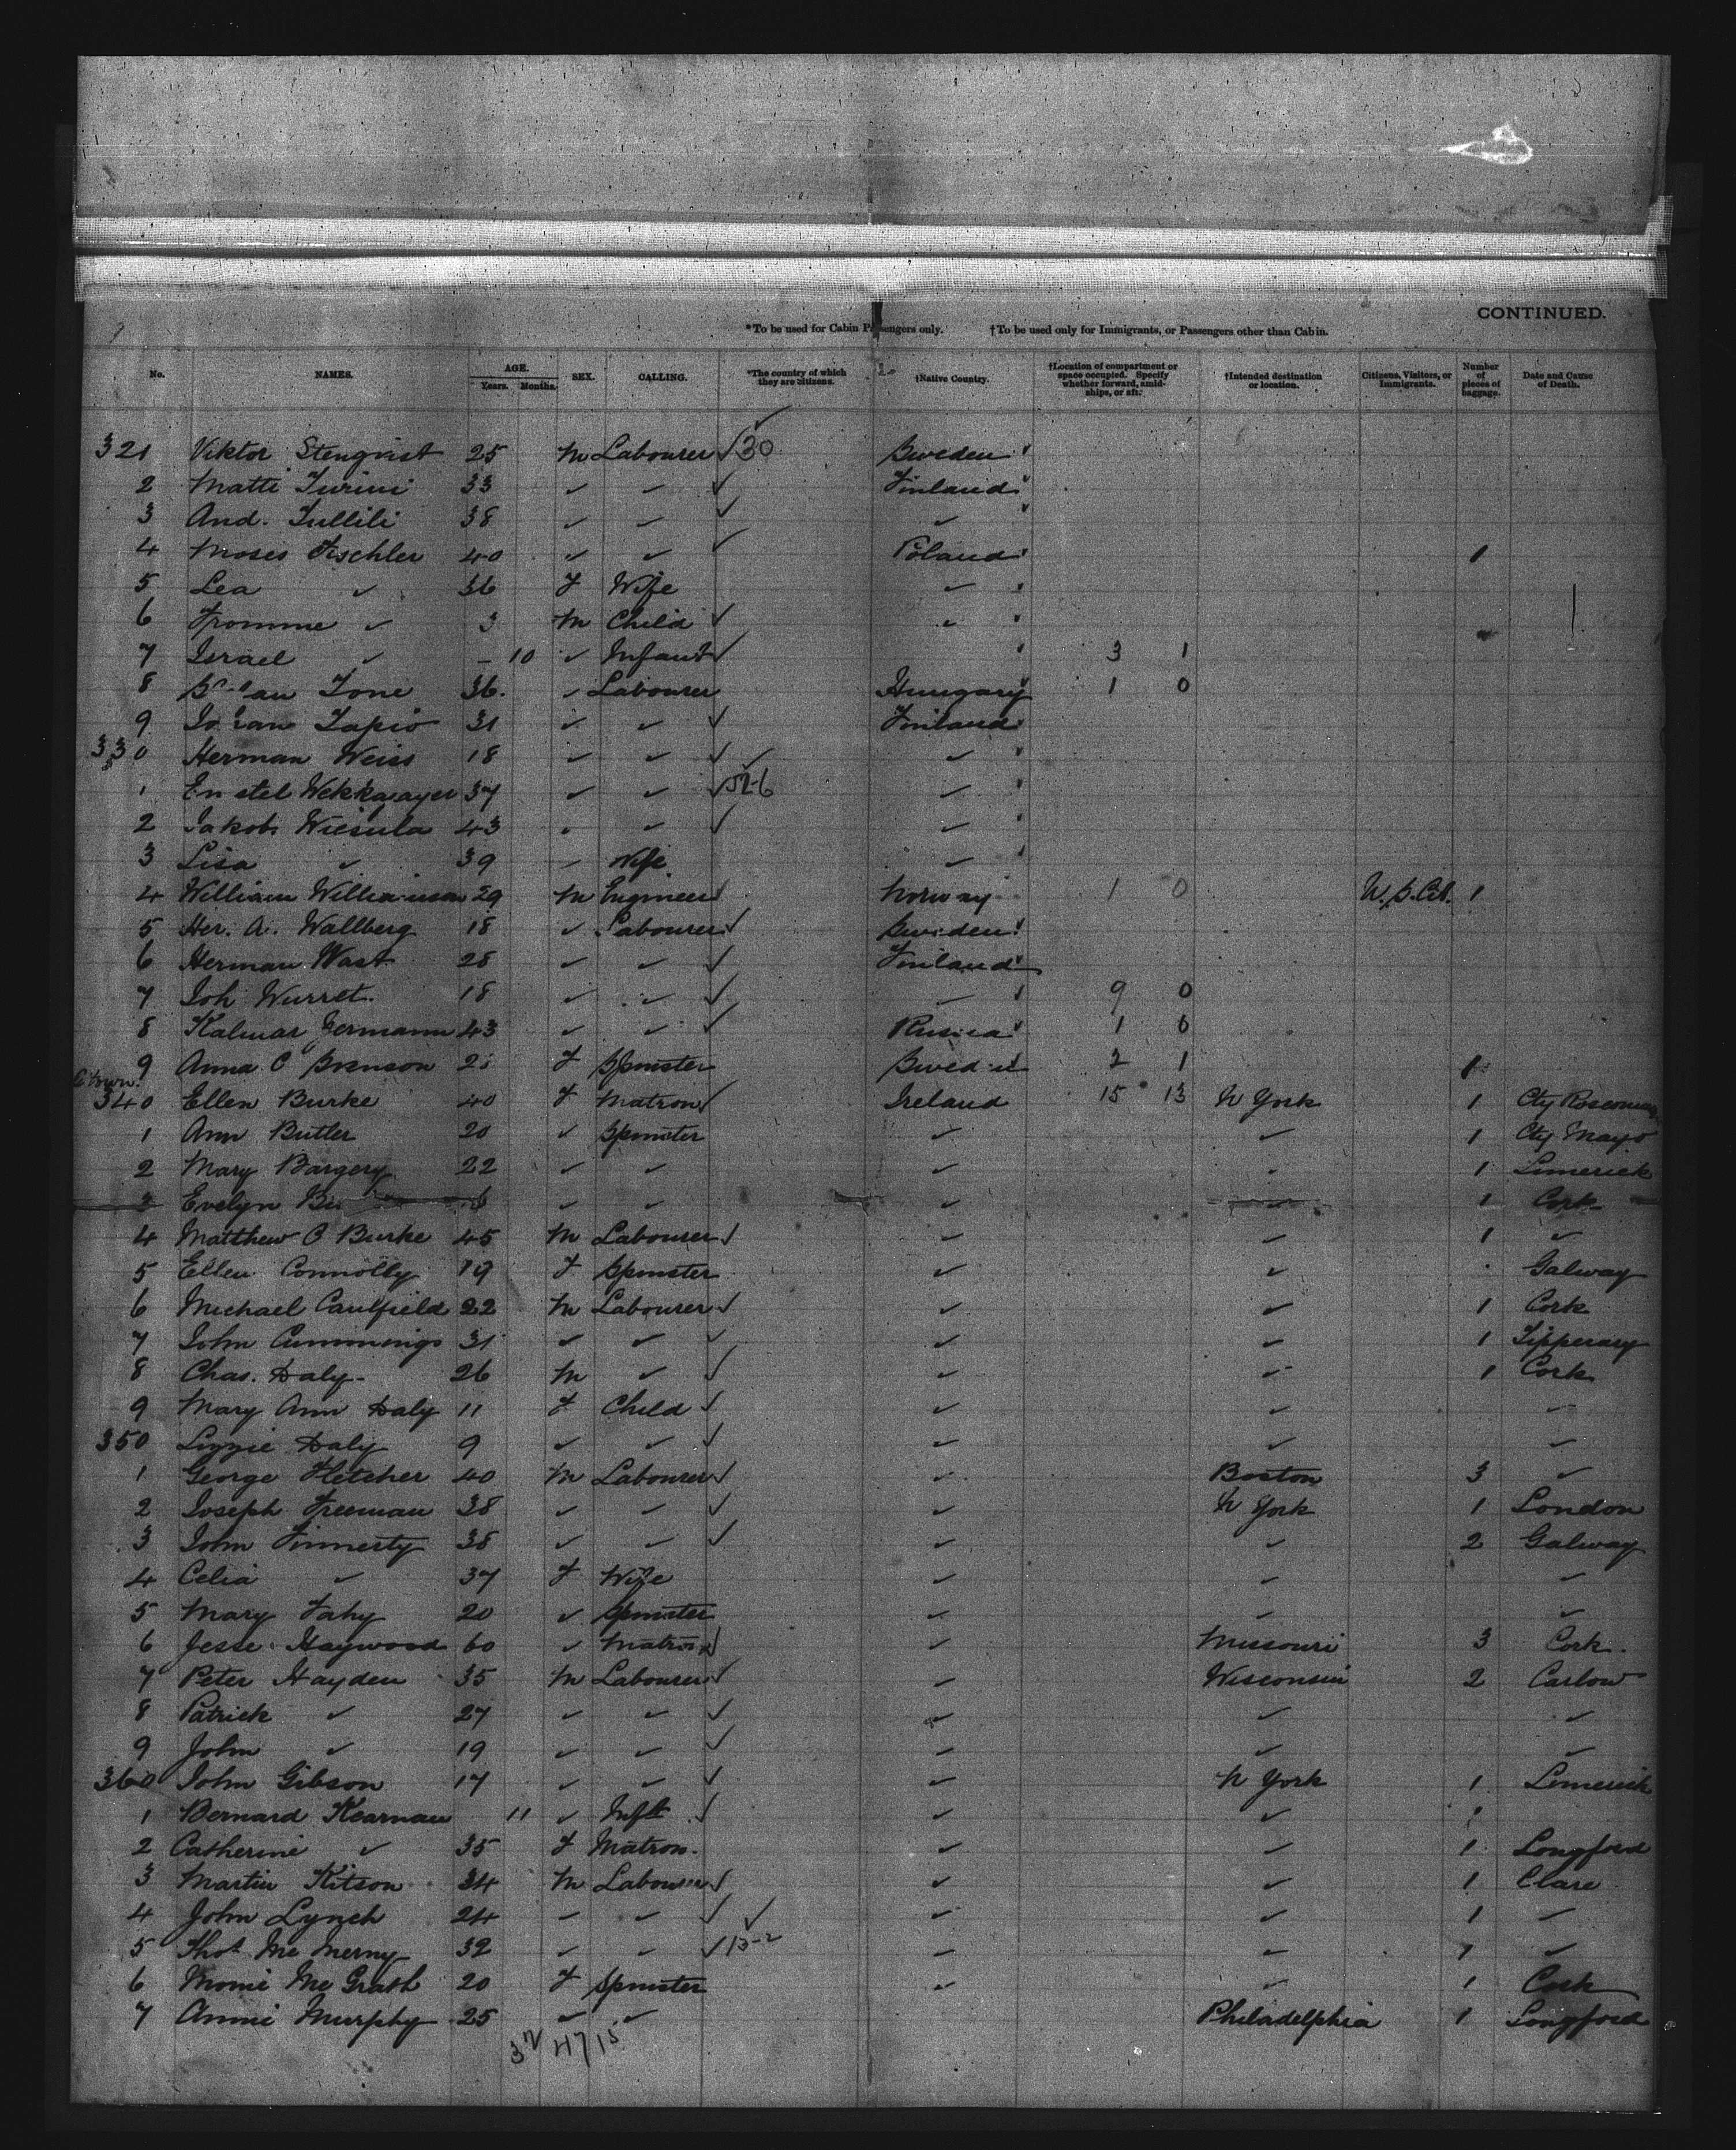 CONTINUED.
*To be used for Cabin Passengers only. †To be used only for Immigrants, or Passengers other than Cabin.
No. NAMES. AGE. Years. Months. SEX. CALLING. *The country of which they are citizens. †Native Country. †Location of compartment or space occupied. Specify whether forward, amidships, or aft. †Intended destination or location. Citizens, Visitors, or Immigrants. Number of pieces of baggage. Date and Cause of Death.
321 Viktor Stenqvist 25 M Labourer ✓ 30 Sweden
2 Matti Turini 33 ✓ ✓ ✓ Finland
3 And. Tullili 38 ✓ ✓ ✓ ✓
4 Moses Fischler 40 ✓ ✓ ✓ Poland 1
5 Lea ✓ 36 F Wife ✓
6 Fromme ✓ 3 M Child ✓ ✓
7 Israel ✓ - 10 ✓ Infant ✓ 3 1
8 Tone 36. ✓ Labourer Hungary 1 0
9 Johan Tapio 31 ✓ ✓ ✓ Finland
330 Herman Weiss 18 ✓ ✓ ✓ ✓
1 37 ✓ ✓ ✓ 52-6 ✓
2 Jakob Wiesula 43 ✓ ✓ ✓ ✓
3 Lisa ✓ 39 Wife ✓
4 William Williamson 29 M Engineer Norway 1 0 U.S. Cit. 1
5 Her. A. Wallberg 18 ✓ Labourer ✓ Sweden
6 Herman Wast 28 ✓ ✓ ✓ Finland
7 Joh Wurret. 18 ✓ ✓ ✓ ✓ 9 0
8 Kalmar Germann 43 ✓ ✓ ✓ Russia 1 0
9 Anna C Svenson F Spinster Sweden 2 1 1
Q'town.
340 Ellen Burke 40 F Matron ✓ Ireland 15 13 N York 1 Cty Roscommon
1 Ann Butler 20 ✓ Spinster ✓ ✓ 1 Cty Mayo
2 Mary Bargery 22 ✓ ✓ ✓ 1 Limerick
3 Evelyn ✓ ✓ ✓ ✓ 1 Cork
4 Matthew O Burke 45 M Labourer ✓ ✓ ✓ 1 ✓
5 Ellen Connolly 19 F Spinster ✓ ✓ Galway
6 Michael Caulfield 22 M Labourer ✓ ✓ ✓ 1 Cork
7 John Cummings 31 ✓ ✓ ✓ ✓ ✓ 1 Tipperary
8 Chas. Daly 26 M ✓ ✓ ✓ ✓ 1 Cork
9 Mary Ann Daly 11 F Child ✓ ✓ ✓ ✓
350 Lizzie Daly 9 ✓ ✓ ✓ ✓ ✓ ✓
1 George Fletcher 40 M Labourer ✓ ✓ Boston 3 ✓
2 Joseph Freeman 38 ✓ ✓ ✓ ✓ N York 1 London
3 John Finnerty 38 ✓ ✓ ✓ ✓ ✓ 2 Galway
4 Celia ✓ 37 F Wife ✓ ✓ ✓
5 Mary Fahy 20 ✓ Spinster ✓ ✓ ✓
6 Jesse Haywood 60 ✓ Matron ✓ ✓ Missouri 3 Cork
7 Peter Hayden 35 M Labourer ✓ ✓ Wisconsin 2 Carlow
8 Patrick ✓ 27 ✓ ✓ ✓ ✓ ✓ ✓
9 John ✓ 19 ✓ ✓ ✓ ✓ ✓ ✓
360 John Gibson 17 ✓ ✓ ✓ ✓ N York 1 Limerick
1 Bernard Kearnan 11 ✓ Inft ✓ ✓ ✓
2 Catherine ✓ 35 F Matron. ✓ ✓ 1 Longford
3 Martin Kitson 34 M Labourer ✓ ✓ ✓ 1 Clare
4 John Lynch 24 ✓ ✓ ✓ ✓ ✓ ✓ 1 ✓
5 Thos Mc Merny 32 ✓ ✓ ✓ 13-2 ✓ ✓ 1 ✓
6 Momie Mc Grath 20 F Spinster ✓ ✓ 1 Cork
7 Annie Murphy 25 ✓ ✓ Philadelphia 1 Longford
32 47 15